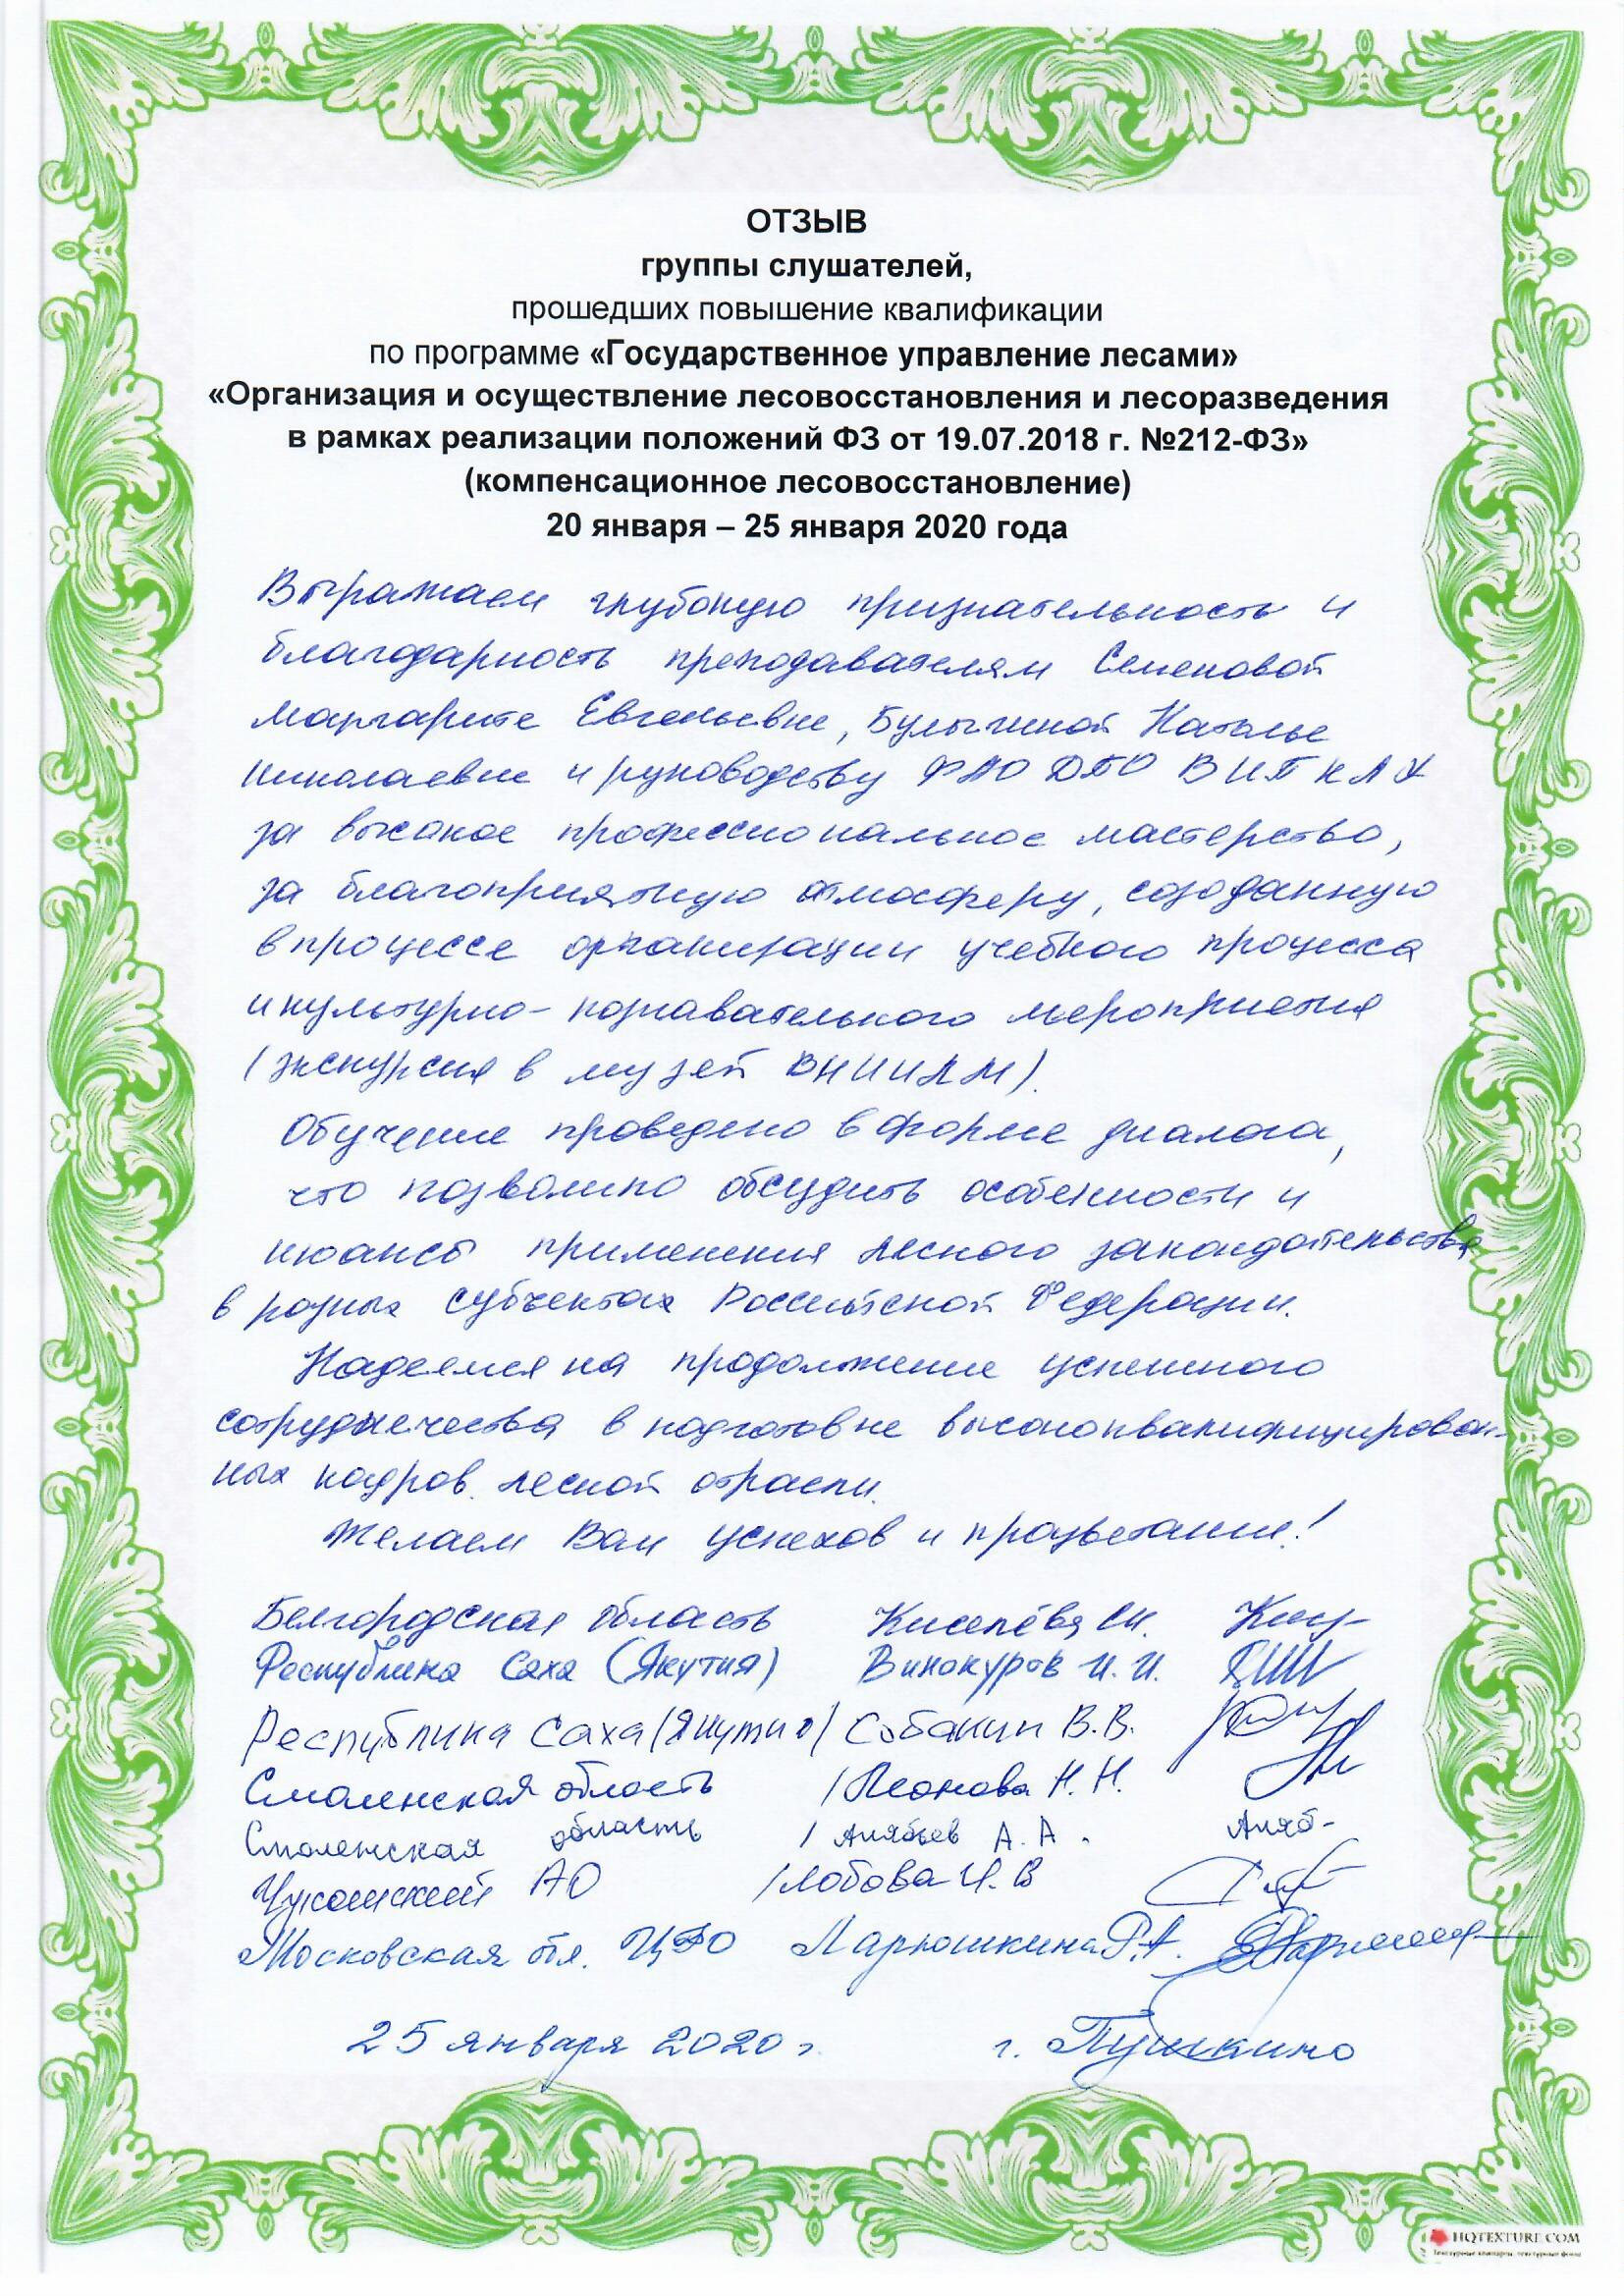 ОТЗЫВ
группы слушателей,
прошедших повышение квалификации
по программе «Государственное управление лесами»
«Организация и осуществление лесовосстановления и лесоразведения
в рамках реализации положений ФЗ от 19.07.2018 г. №212-ФЗ»
(компенсационное лесовосстановление)
20 января – 25 января 2020 года
Выражаем глубокую признательность и
благодарность преподавателям Семеновой
Маргарите Евгеньевне, Булыгиной Наталье
Николаевне и руководству ФАО ДПО ВИПКЛХ
за высокое профессиональное мастерство,
за благоприятную атмосферу, созданную
в процессе организации учебного процесса
и культурно-познавательного мероприятия
(экскурсия в музей ВНИИЛМ).
Обучение проведено в форме диалога,
что позволило обсудить особенности и
нюансы применения лесного законодательства
в разных субъектах Российской Федерации.
Надеемся на продолжение успешного
сотрудничества в подготовке высококвалифицирован-
ных кадров лесной отрасли.
Желаем Вам успехов и процветания!
Белгородская область Киселёва
Республика Саха (Якутия) Винокуров И. И.
Республика Саха (Якутия) Собакин В.В.
Смоленская область /Леонова Н. Н.
Смоленская область / Алябьев А. А.
Чукотский АО /Лобова И. В
Московская обл. ЦФО Ларюшкина Р.А.
25 января 2020 г. г. Пушкино
HQTEXTURE.COM